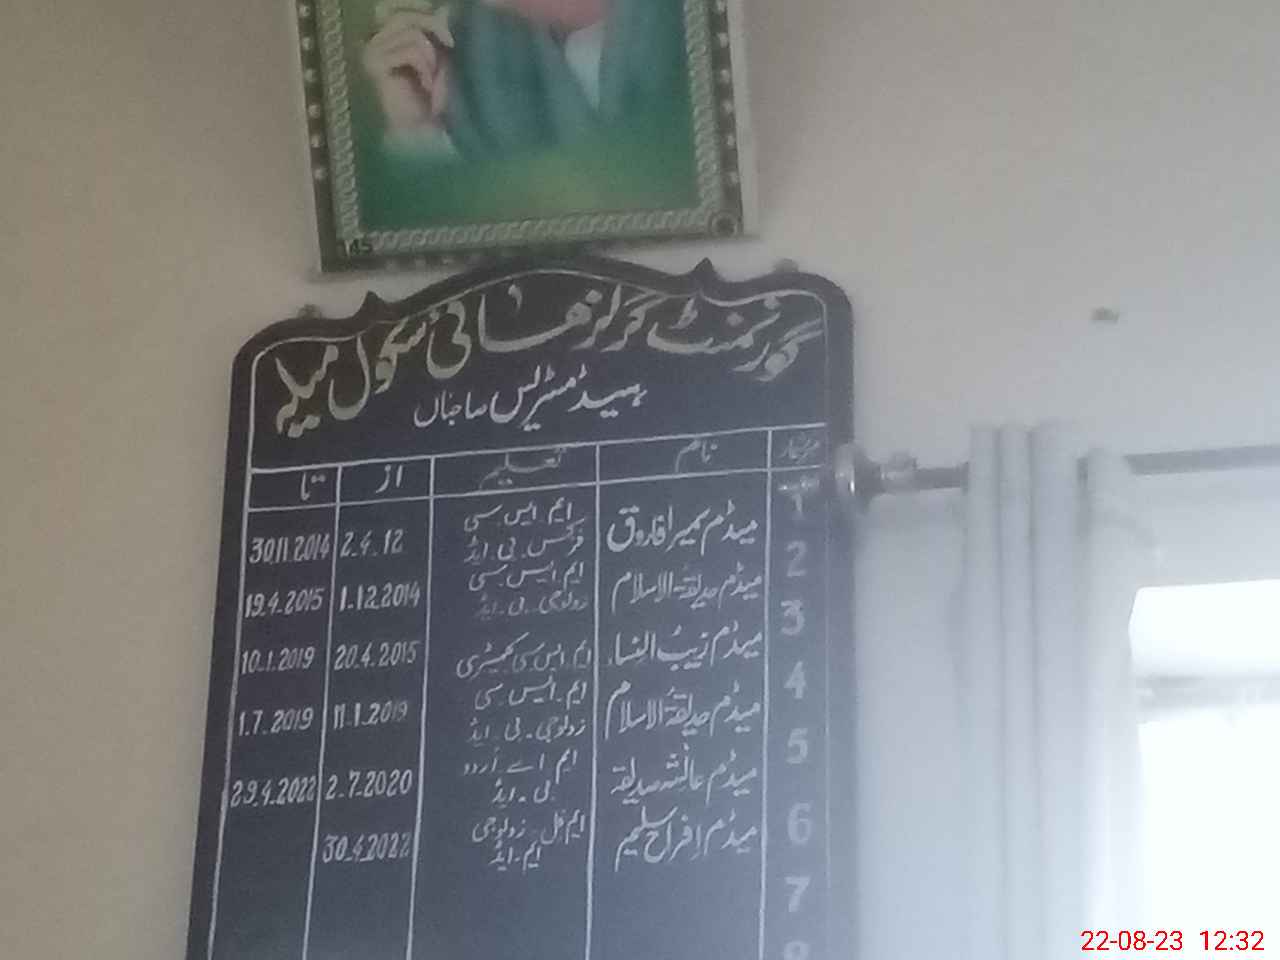 145
گورنمنٹ گرلز ھائی سکول میلہ
ہیڈمسٹریس صاحباں
نمبرشمار نام تعلیم از تا
1 میڈم سمیرا فاروق ایم ایس سی فزکس بی ایڈ 2.4.12 30.11.2014
2 میڈم صدیقۃ الاسلام ایم ایس سی زولوجی بی ایڈ 1.12.2014 19.4.2015
3 میڈم زیب النساء ایم ایس سی کمیسٹری 20.4.2015 10.1.2019
4 میڈم صدیقۃ الاسلام ایم ایس سی زولوجی بی ایڈ 11.1.2019 1.7.2019
5 میڈم عائشہ صدیقہ ایم اے اُردو بی ایڈ 2.7.2020 29.4.2022
6 میڈم افراح سلیم ایم فل زولوجی ایم ایڈ 30.4.2022
7
22-08-23 12:32